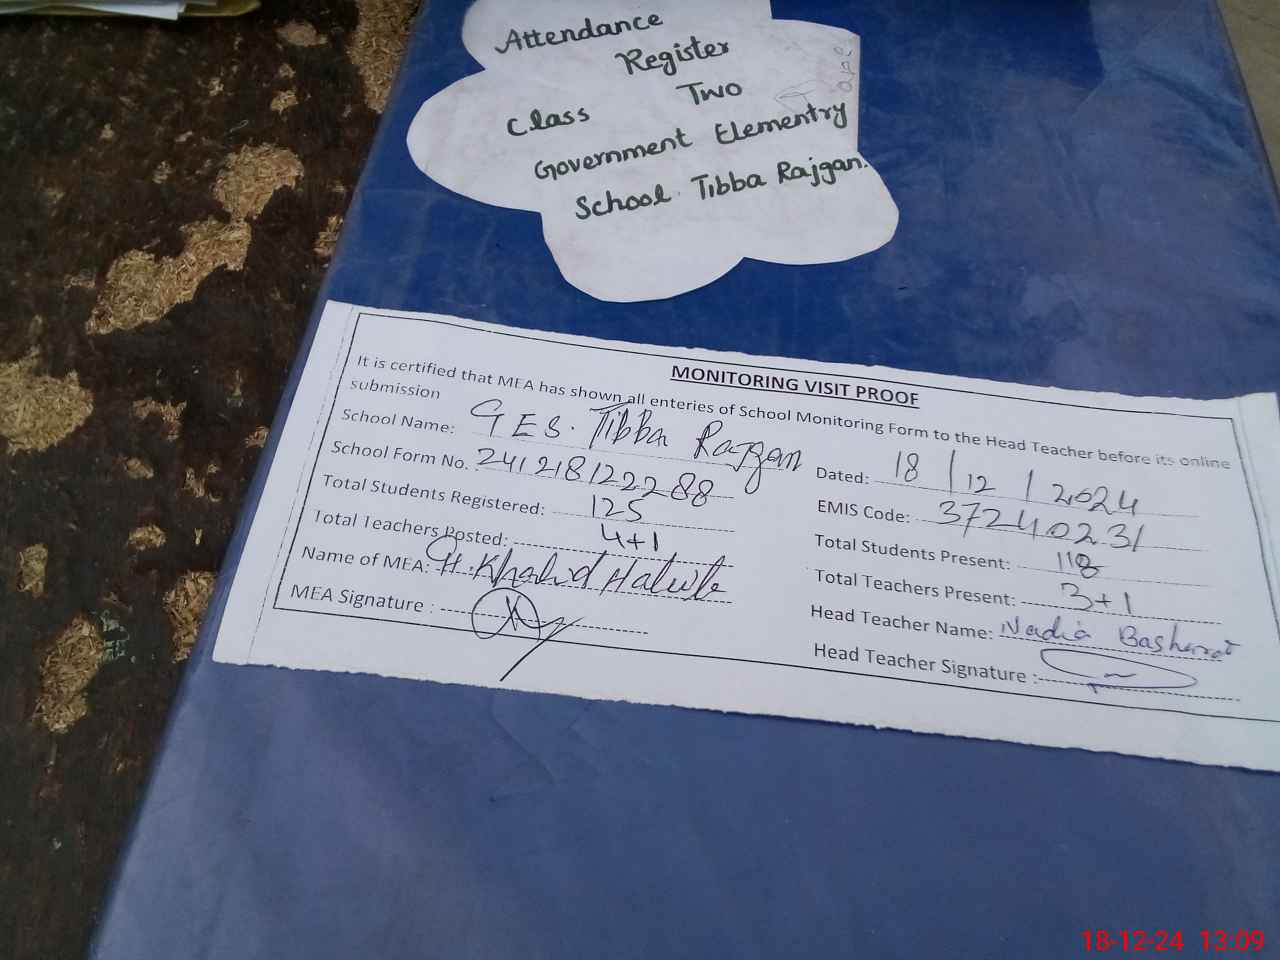 Attendance
Register
Class Two
Government Elementry
School Tibba Rajgan.
MONITORING VISIT PROOF
It is certified that MEA has shown all enteries of School Monitoring Form to the Head Teacher before its online
submission
School Name: GES. Tibba Rajgan
Dated: 18/12/2024
School Form No. 241218122288
EMIS Code: 37240231
Total Students Registered: 125
Total Students Present: 118
Total Teachers Posted: 4+1
Total Teachers Present: 3+1
Name of MEA: Khalid
Head Teacher Name: Nadia Basharat
MEA Signature :
Head Teacher Signature :
18-12-24 13:09